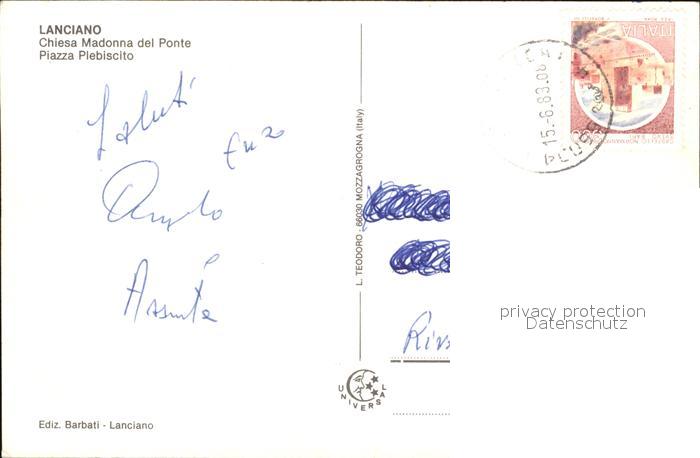 LANCIANO
Chiesa Madonna del Ponte
Piazza Plebiscito
Saluti
Enzo
Angelo
Assunta
L. TEODORO - 66030 MOZZAGROGNA (Italy)
ITALIA
15.-6.83.08
privacy protection
Datenschutz
UNIVERSAL
Ediz. Barbati - Lanciano